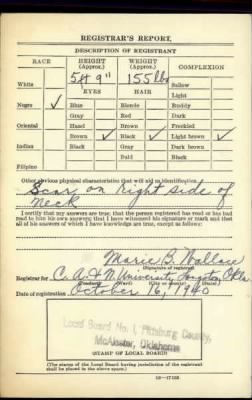 REGISTRAR'S REPORT
DESCRIPTION OF REGISTRANT
RACE HEIGHT (Approx.) WEIGHT (Approx.) COMPLEXION
5ft 9" 155 lbs
White Sallow
EYES HAIR Light
Negro ✓ Blue Blonde Ruddy
Gray Red Dark
Oriental Hazel Brown Freckled
Brown ✓ Black ✓ Light brown ✓
Indian Black Gray Dark brown
Bald Black
Filipino
Other obvious physical characteristics that will aid in identification
Scar on right side of
neck
I certify that my answers are true; that the person registered has read or has had
read to him his own answers; that I have witnessed his signature or mark and that
all of his answers of which I have knowledge are true, except as follows:
Marie B. Wallace
(Signature of registrar)
Registrar for C. A. & N. University, Langston, Okla.
(Precinct) (Ward) (City or County) (State)
Date of registration October 16, 1940
Local Board No. 1, Pittsburg County,
McAlester, Oklahoma
(STAMP OF LOCAL BOARD)
(The stamp of the Local Board having jurisdiction of the registrant
shall be placed in the above space.)